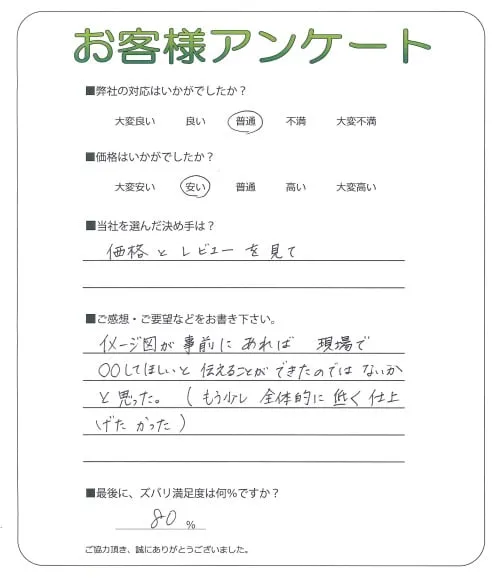 お客様アンケート
■弊社の対応はいかがでしたか？
大変良い 良い 普通 不満 大変不満
■価格はいかがでしたか？
大変安い 安い 普通 高い 大変高い
■当社を選んだ決め手は？
価格とレビューを見て
■ご感想・ご要望などをお書き下さい。
イメージ図が事前にあれば 現場で
〇〇してほしいと伝えることができたのではないか
と思った。(もう少し全体的に低く仕上
げたかった)
■最後に、ズバリ満足度は何％ですか？
80 %
ご協力頂き、誠にありがとうございました。